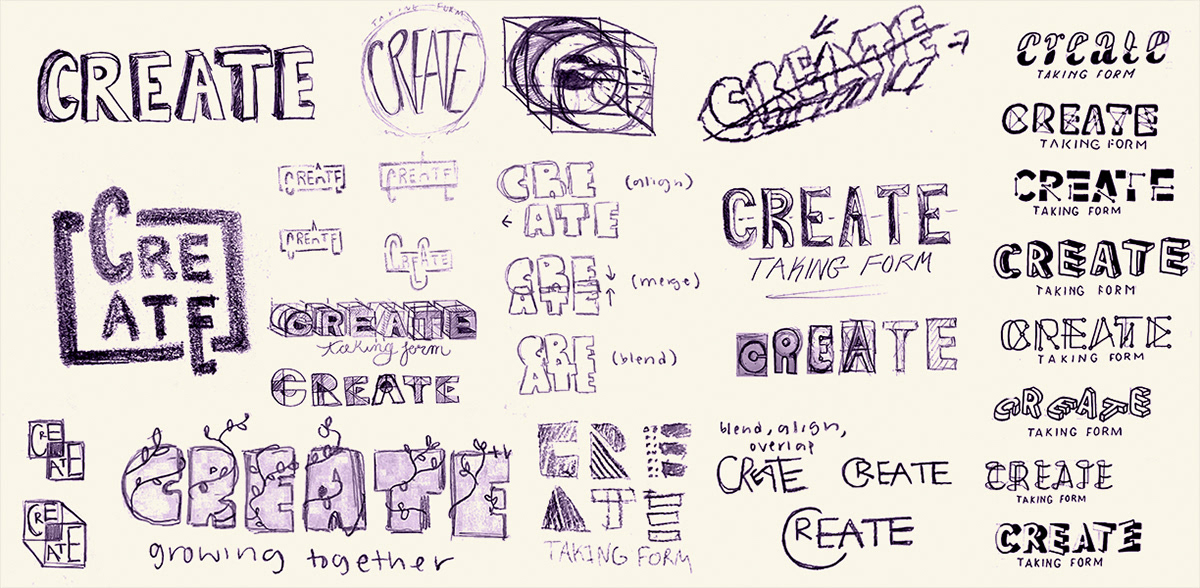 CREATE
TAKING FORM
CREATE
C
CREATE
create
TAKING FORM
CREATE
TAKING FORM
CREATE
TAKING FORM
CREATE
TAKING FORM
CREATE
TAKING FORM
CREATE
TAKING FORM
CREATE
TAKING FORM
CREATE
TAKING FORM
CRE
ATE
CREATE
CREATE
CREATE
CREATE
CREATE
taking form
CREATE
CRE
ATE
(align)
CRE
ATE
(merge)
CRE
ATE
(blend)
CREATE
TAKING FORM
CREATE
CRE
ATE
CRE
ATE
CREATE
growing together
CRE
ATE
TAKING FORM
blend, align,
overlap
CREATE
CREATE
CREATE